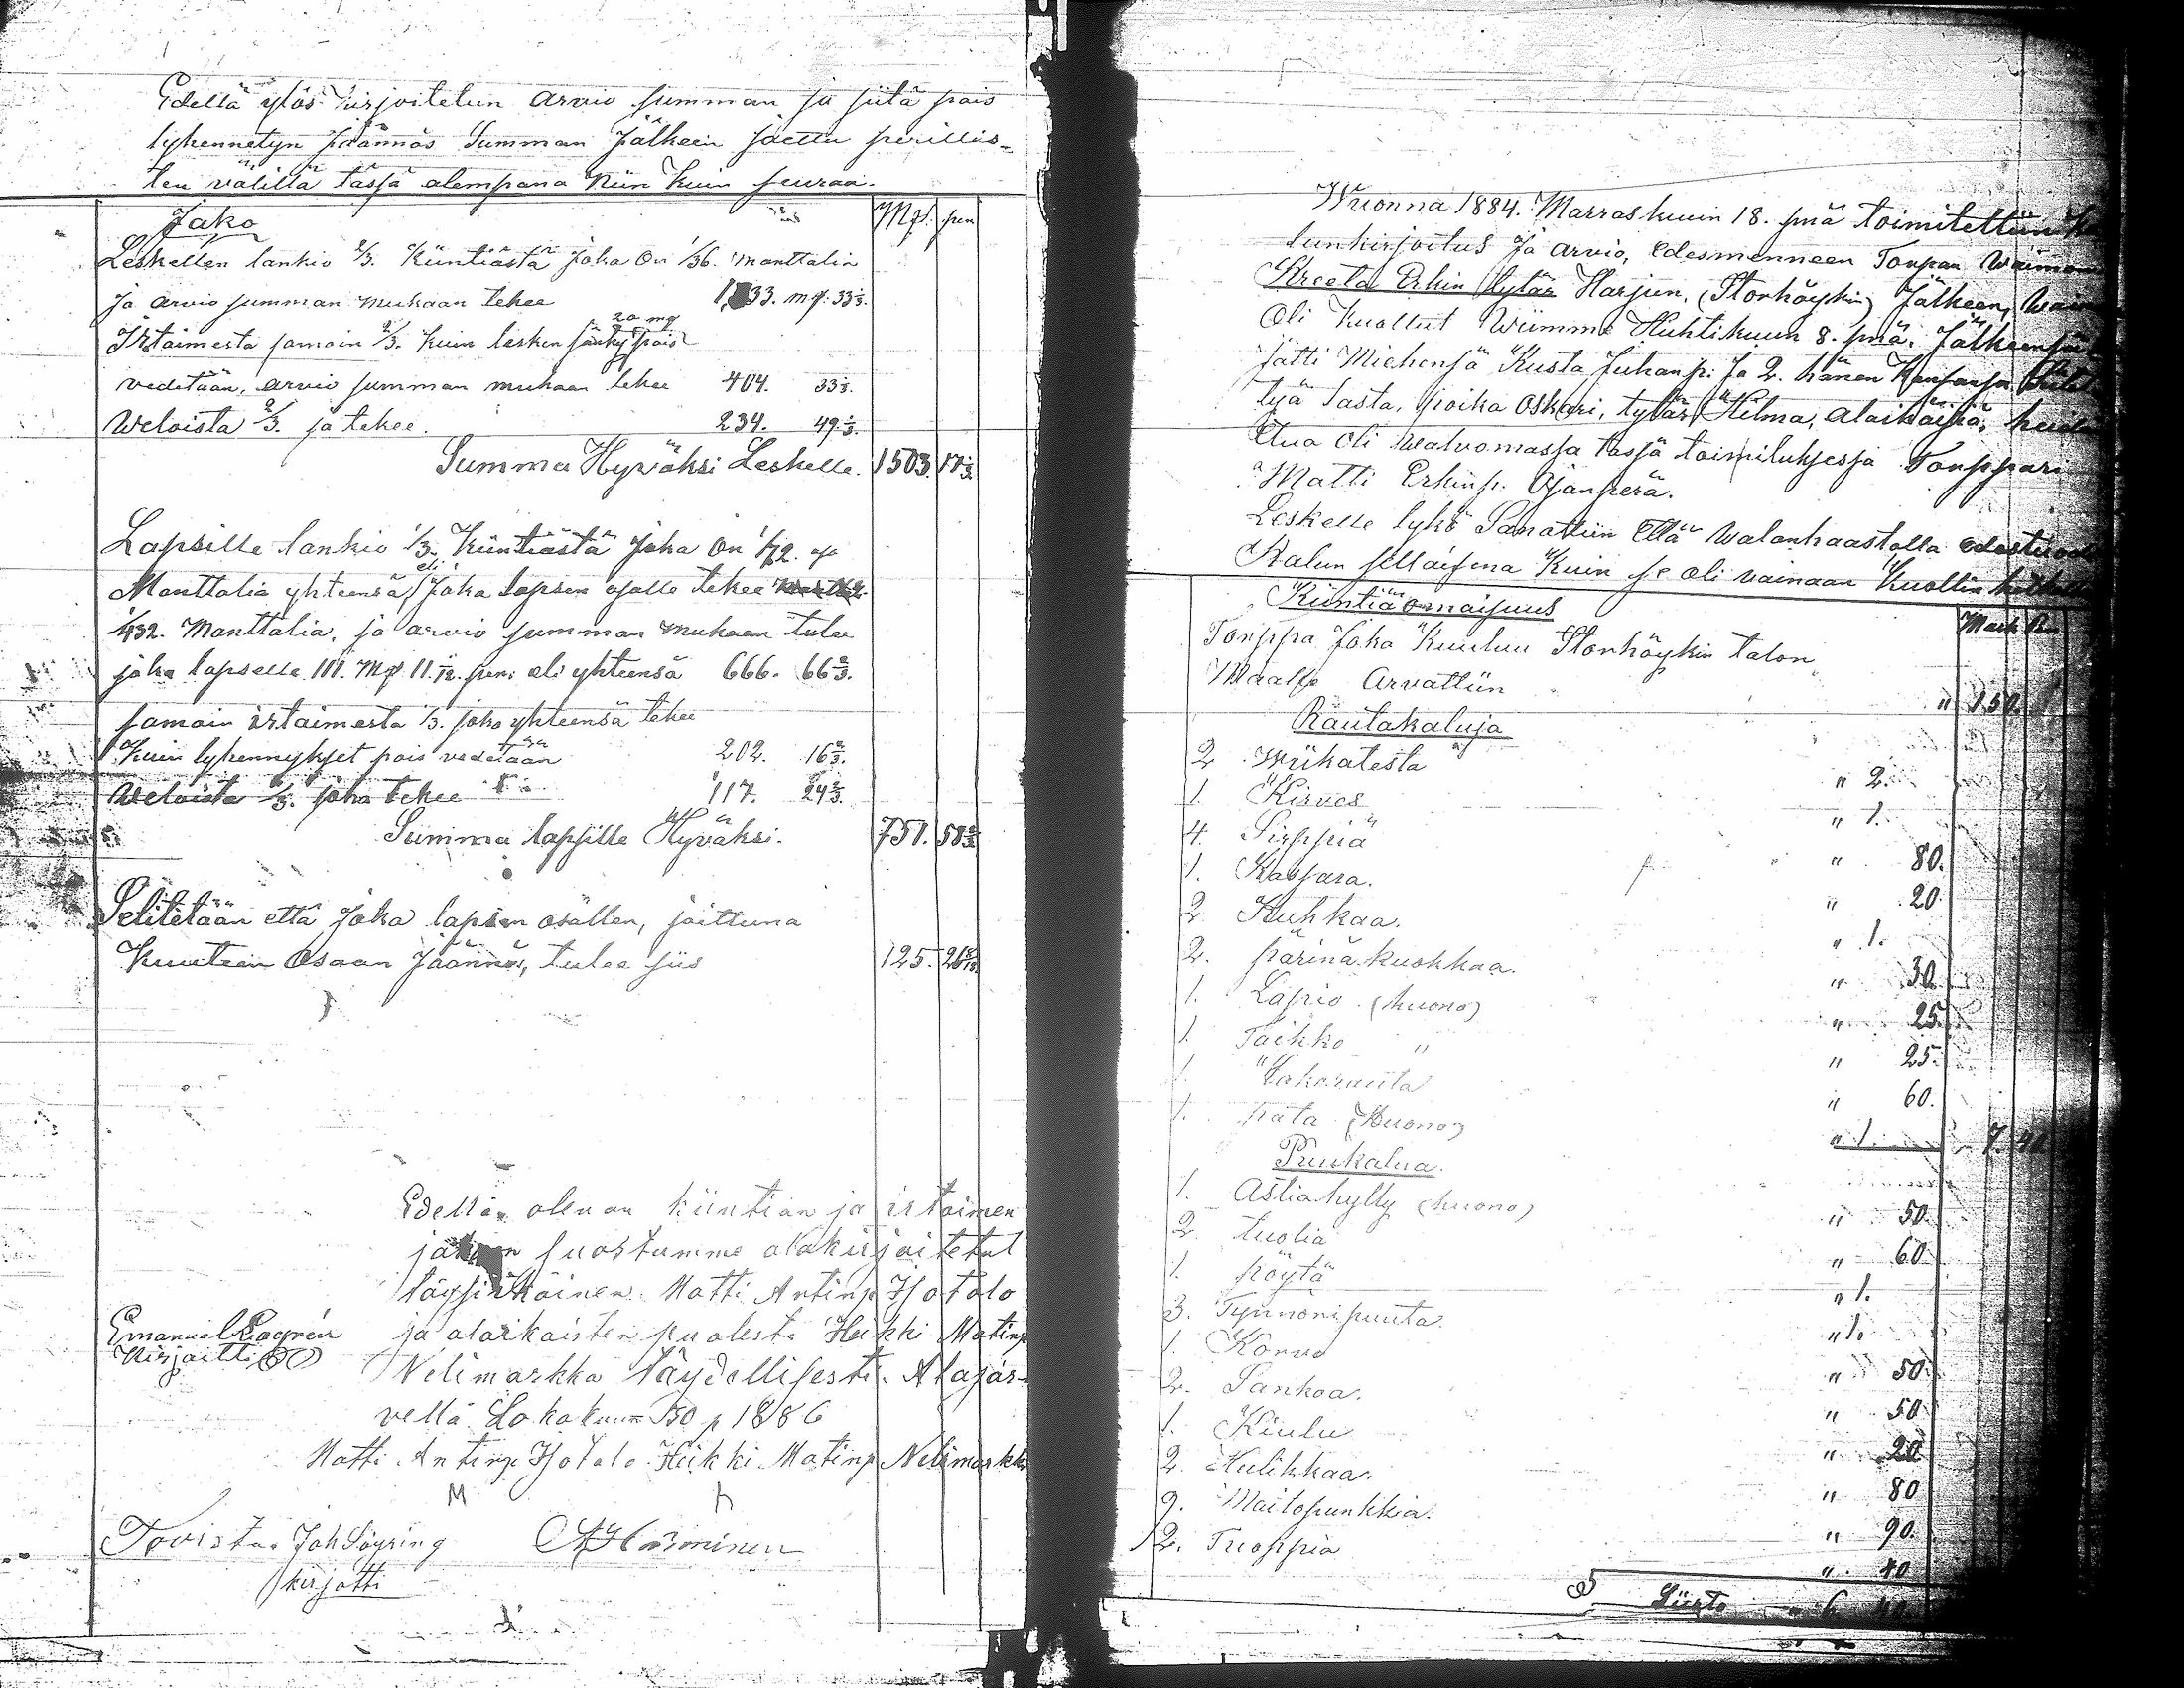 Edellä ylös kirjoitetun arvio summan ja siitä pois
lyhennetyn Jäännös Summan Jälkeen jaettu perillis-
ten välillä tässä alempana niin kuin seuraa.
Jako
Mk. pen
Leskellen lankio 2/3. Kiintiästä joka on 1/36. manttalia
ja arvio summan mukaan tekee 1,333. mk. 33 1/3.
20 mk
Irtaimesta samoin 2/3. Kuin lesken sänky pois
vedetään, arvio summan mukaan tekee 404. 33 1/3.
Weloista 2/3. ja tekee. 234. 49 1/3.
Summa Hyväksi Leskelle. 1503. 17 1/3
Lapsille lankio 1/3. Kiintiästä joka on 1/72.
Manttalia yhteensä eli Joka lapsen osalle tekee
1/432. Manttalia, ja arvio summan mukaan tulee
joka lapselle 111. Mk 11 1/12. pen: eli yhteensä 666. 66 2/3.
samoin irtaimesta 1/3. joka yhteensä tekee
Kuin lyhennykset pois vedetään 202. 16 2/3.
Weloista 1/3. joka tekee 117. 24 2/3.
Summa lapsille Hyväksi. 751. 58 2/3
Selitetään että Joka lapsen osallen, jaittuna
Kuuteen Osaan Jäännös, tulee siis 125. 26
Edellä olevan kiintiän ja irtaimen
jakoon suostumme alakirjoitetut
täysi ikäinen Matti Antinp Hotalo
ja alaikäisten puolesta Heikki Matinp
Nelimarkka täydellisesti. Alajär-
vellä Lokakuun 30 p 1886
Emanuel Lagrén
Kirjoitti
Matti Antinp Hotalo Heikki Matinp Nelimarkka
M
Tovistaa Joh Söyring
kirjotti
Wuonna 1884. Marraskuun 18. pnä toimitettiin
lunkirjoitus Ja arvio, edesmenneen Torpan Waimon
Kreeta Erkin tytär Harjun, (Storhöykin) Jälkeen,
Oli Kuollut Wiimme Huhtikuun 8. pnä. Jälkeensä
Jätti Miehensä Kusta Juhanp: Ja 2. hänen Kanssansa
tyä Lasta, poika Oskari, tytär Hilma, alaikäisiä,
Etua oli walvomassa tässä toimituksessa Torppari
Matti Erkinp. Ojanperä.
Leskelle lykö Sanattiin Että Walanhaastolla
Kalun sellaisena Kuin se oli vainaan Kuollin
Kiintiä omaisuus
Mark Pen
Torppa Joka Kuuluu Storhöykin talon
Maalle Arvattiin " 150.
Rautakaluja
2 Wiikatesta " 2.
1. Kirves " 1.
4. Sirppiä " 80.
1. Kassara. " 20.
2. Kuhkaa. " 1.
2. pärinä kuokkaa. " 30.
1. Lapio (huono) " 25.
1. Taikko " " 25.
1. Vakorauta " 60.
1. pata (Huono) " 1. 7. 40
Puukalua.
1. Astiahylly (huono) " 50.
2 tuolia " 60.
1. pöytä " 1.
3. Tynnöripuuta " 1.
1. Korvo " 50.
2. Sankoa. " 50.
1. Kiulu " 20
2. Kulikkaa. " 80
9. Maitopunkkia. " 90.
2. Tuoppia " 40
Siirto " 6 40.